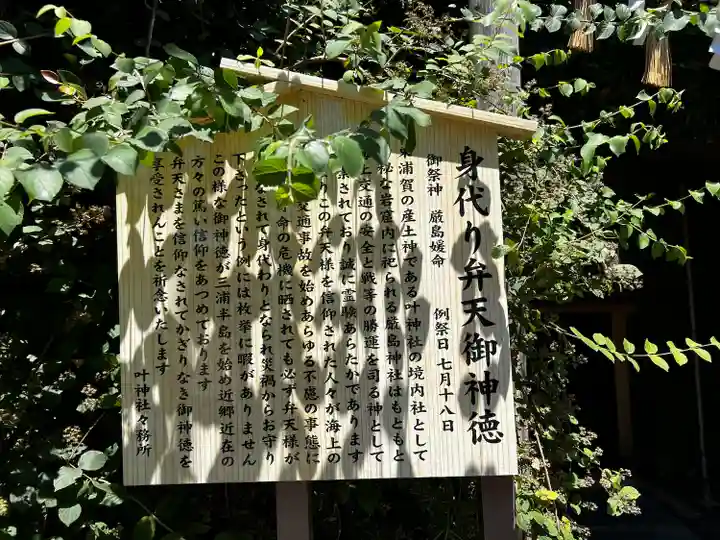 身代り弁天御神徳
御祭神 厳島媛命 例祭日 七月十八日
浦賀の産土神である叶神社の境内社として
秘な岩窟内に祀られる厳島神社はもともと
と交通の安全と戦等の勝運を司る神として
されており誠に霊験あらたかであります
りこの弁天様を信仰された人々が海上の
交通事故を始めあらゆる不慮の事態に
命の危機に晒されても必ず弁天様が
なされて身代わりとなられ災禍からお守り
下さったという例には枚挙に暇がありません
この様な御神徳が三浦半島を始め近郷近在の
方々の篤い信仰をあつめております
弁天さまを信仰なされてかぎりなき御神徳を
享受されんことを祈念いたします
叶神社々務所